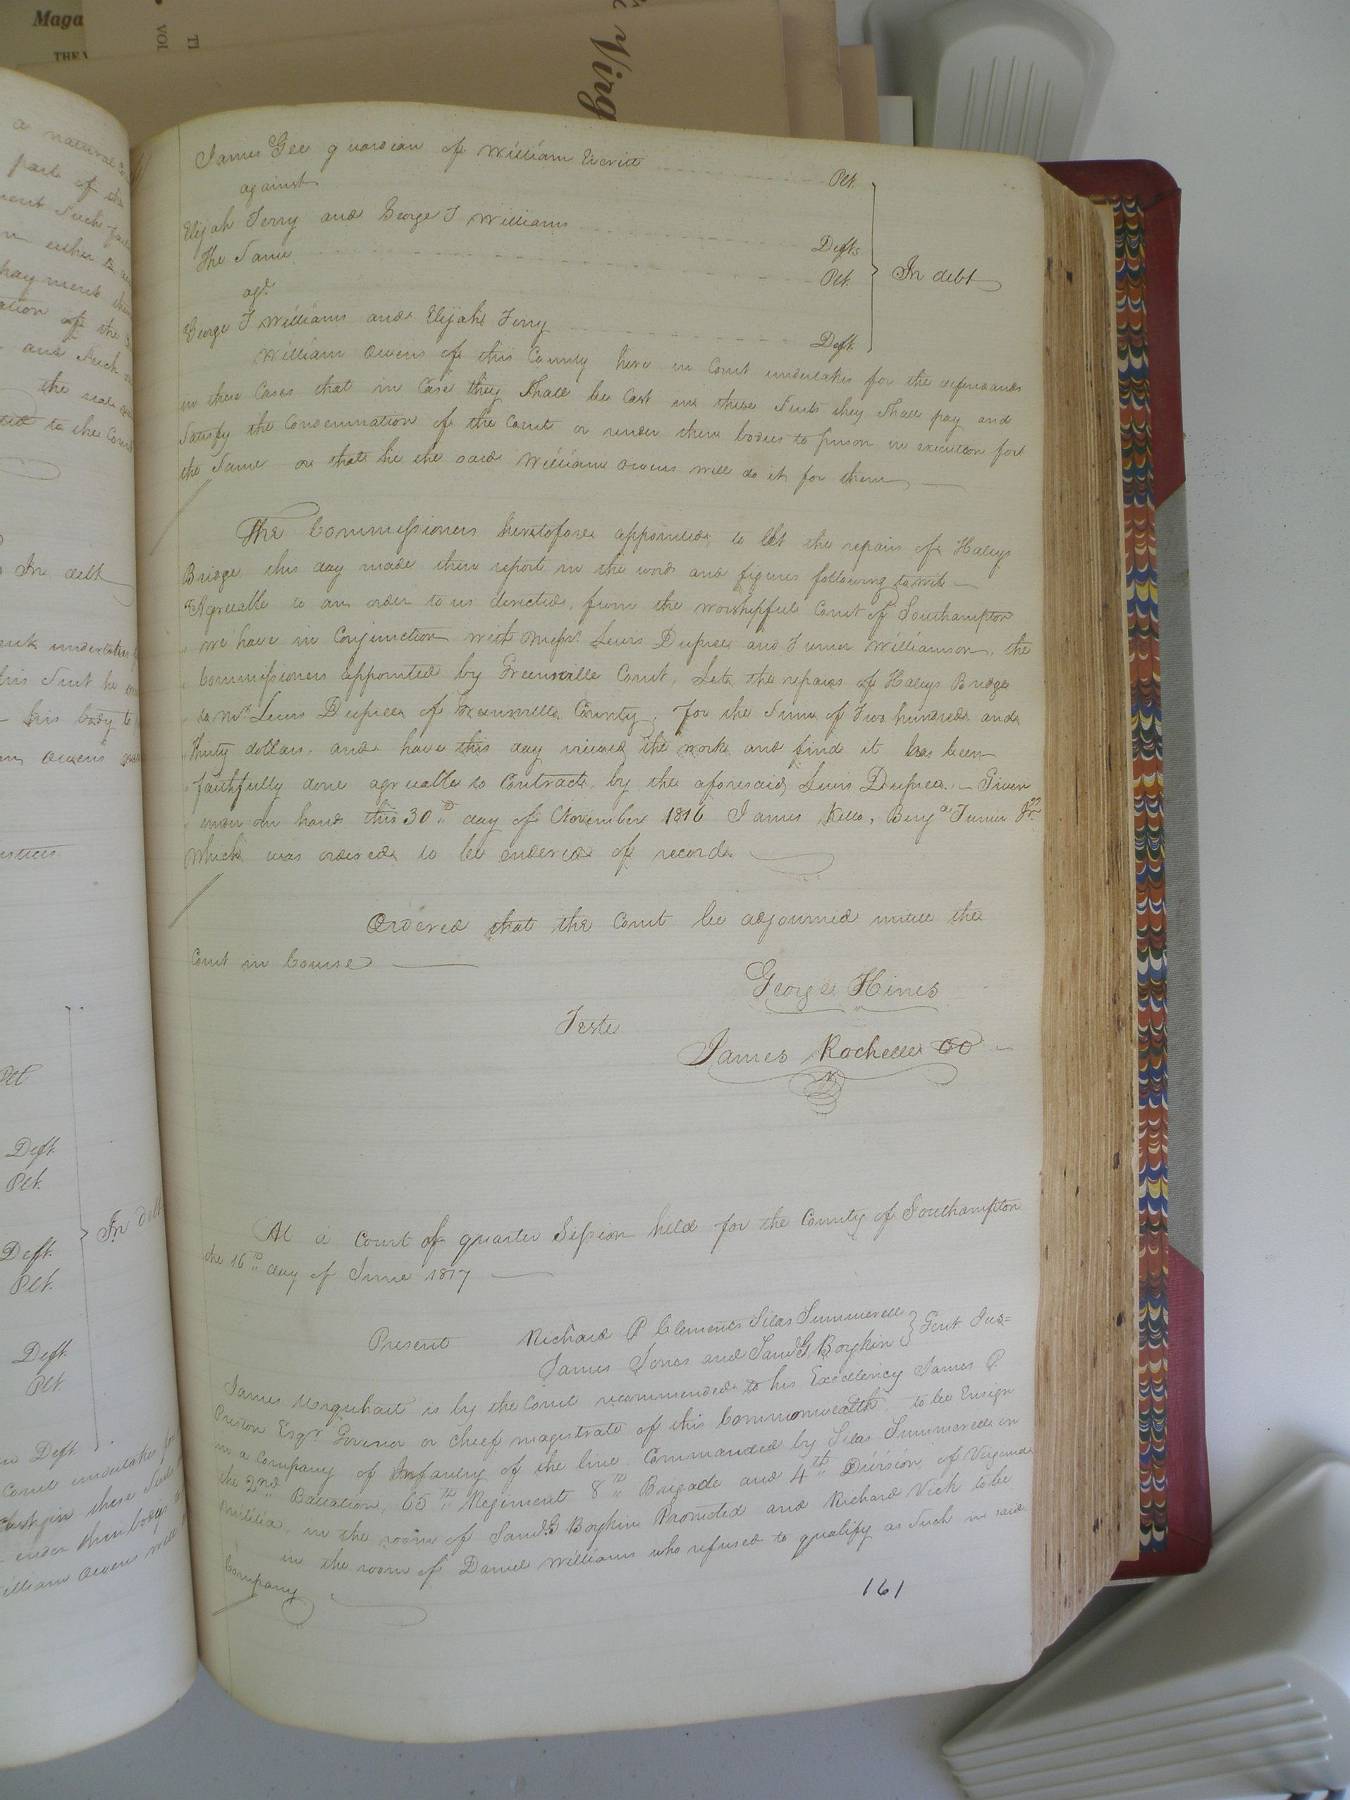 Maga
THE V
VOL
TI
Virg
James Gee guardian of William Everitt Plt.
against
Elijah Terry and George T Williams Defts
In debt
The Same Plt.
agt.
George T Williams and Elijah Terry Deft.
William Owens of this County here in Court undertakes for the defendants
in these Cases that in Case they Shall be Cast in these Suits they Shall pay and
Satisfy the Condemnation of the Court or render their bodies to prison in execution for
the Same or that he the said William Owens will do it for them
The Commissioners heretofore appointed to let the repairs of Haleys
Bridge this day made their report in the words and figures following to wit
Agreeable to an order to us directed, from the worshipful Court of Southampton
we have in Conjunction with Messrs. Lewis Dupree and Turner Williamson, the
Commissioners Appointed by Greensville Court, Let the repairs of Haleys Bridge
to Mr. Lewis Dupree of Greensville County, for the Sum of Two hundred and
thirty dollars. and have this day viewed the work and find it has been
faithfully done agreeable to Contract by the aforesaid Lewis Dupree. - Given
under our hands this 30th day of November 1816 James Kello, Benja. Turner Jr.
Which was ordered to be entered of record
Ordered that the Court be adjourned untill the
Court in Course
George Hines
Teste
James Rochelle CC
At a Court of quarter Session held for the County of Southampton
the 16th day of June 1817
Present Richard P Clements Silas Summerell
Gent. Jus=
James Jones and Saml G. Boykin
James Urquhart is by the Court recommended to his Excellency James P.
Preston Esqr. Governor or chief magistrate of this Commonwealth to be Ensign
in a Company of Infantry of the line Commanded by Silas Summerell in
the 2nd Battalion, 65th Regiment 8th Brigade and 4th Division of Virginia
militia, in the room of Saml. G Boykin Promoted and Richard Vick to be
in the room of Daniel Williams who refused to qualify as Such in said
Company
161
a natural
part of the
In debt
his body to
Plt
Deft.
Plt.
In debt
Deft.
Plt.
Deft.
Plt.
Deft